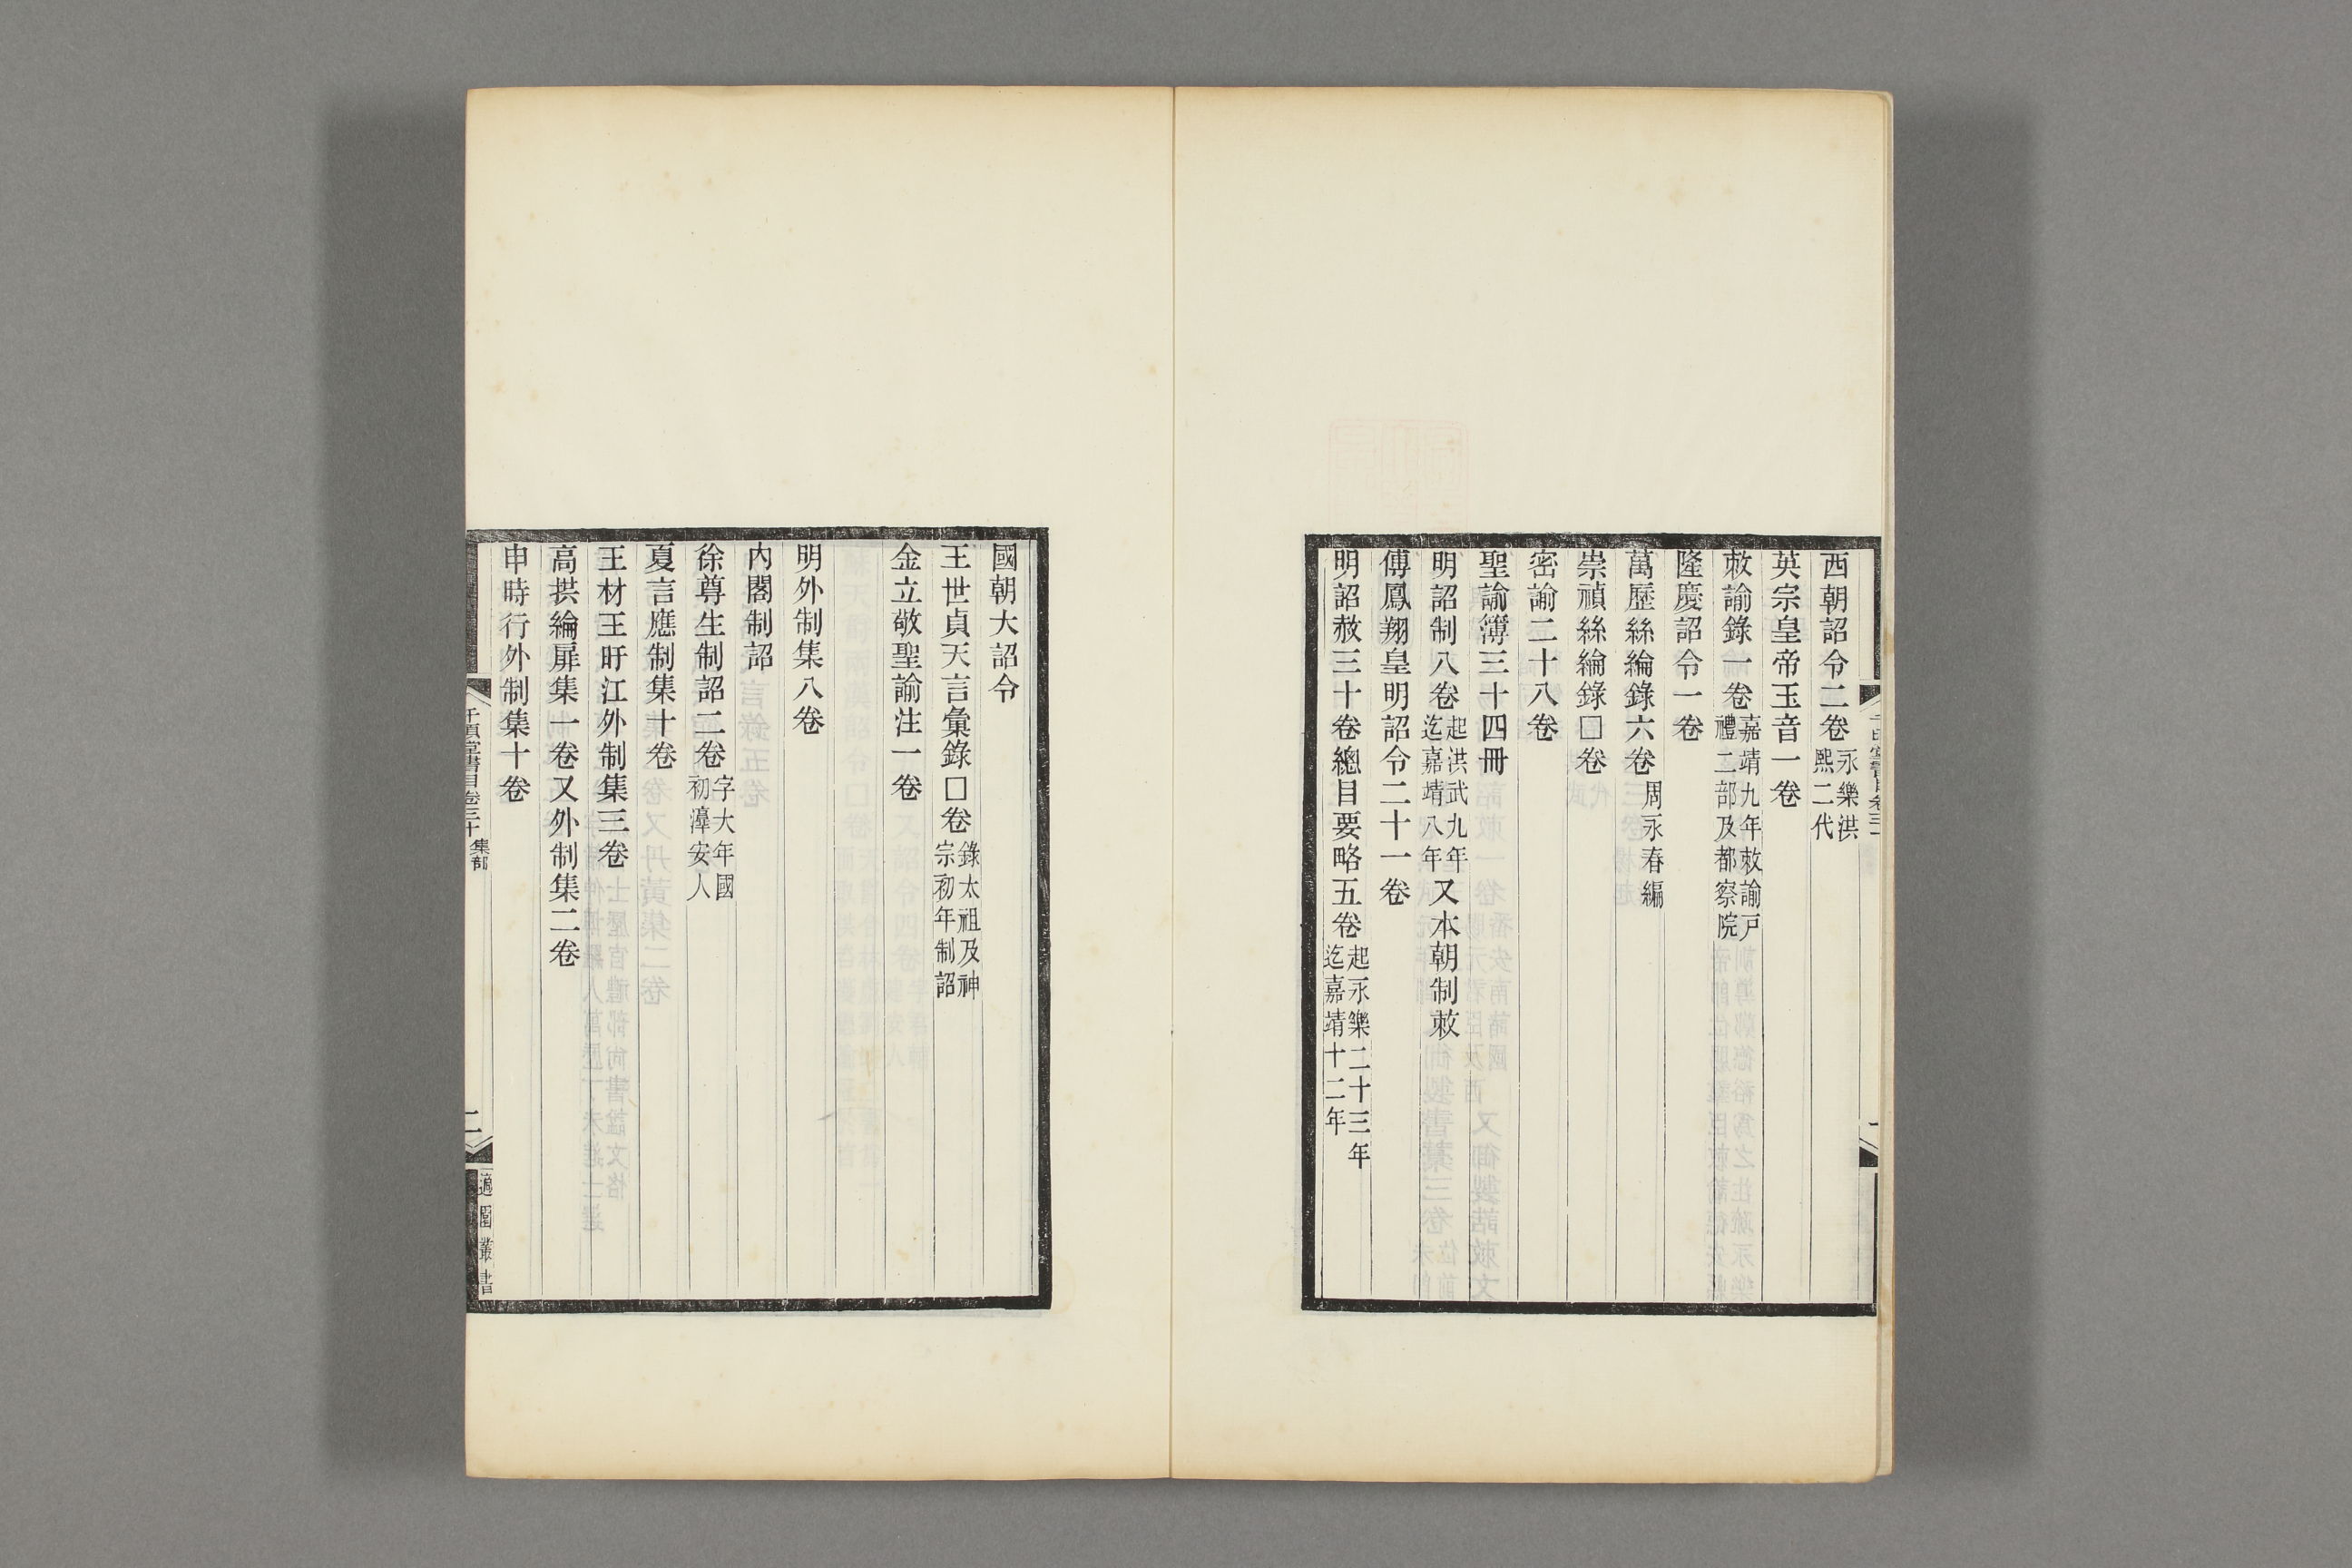 西朝詔令二卷永樂洪熙二代
英宗皇帝玉音一卷
敕諭錄一卷嘉靖九年敕諭戸禮二部及都察院
隆慶詔令一卷
萬歷絲綸錄六卷周永春編
崇禎絲綸錄□卷
密諭二十八卷
聖諭簿三十四冊
明詔制八卷起洪武九年迄嘉靖八年又本朝制敕
傅鳳翔皇明詔令二十一卷
明詔赦三十卷總目要略五卷起永樂二十三年迄嘉靖十二年
國朝大詔令
王世貞天言彙錄□卷錄太祖及神宗初年制詔
金立敬聖諭注一卷
明外制集八卷
內閣制詔
徐尊生制詔二卷字大年國初湻安人
夏言應制集十卷
王材王旴江外制集三卷
高拱綸扉集一卷又外制集二卷
申時行外制集十卷
千頃堂書目卷三十 集部
二
適園叢書